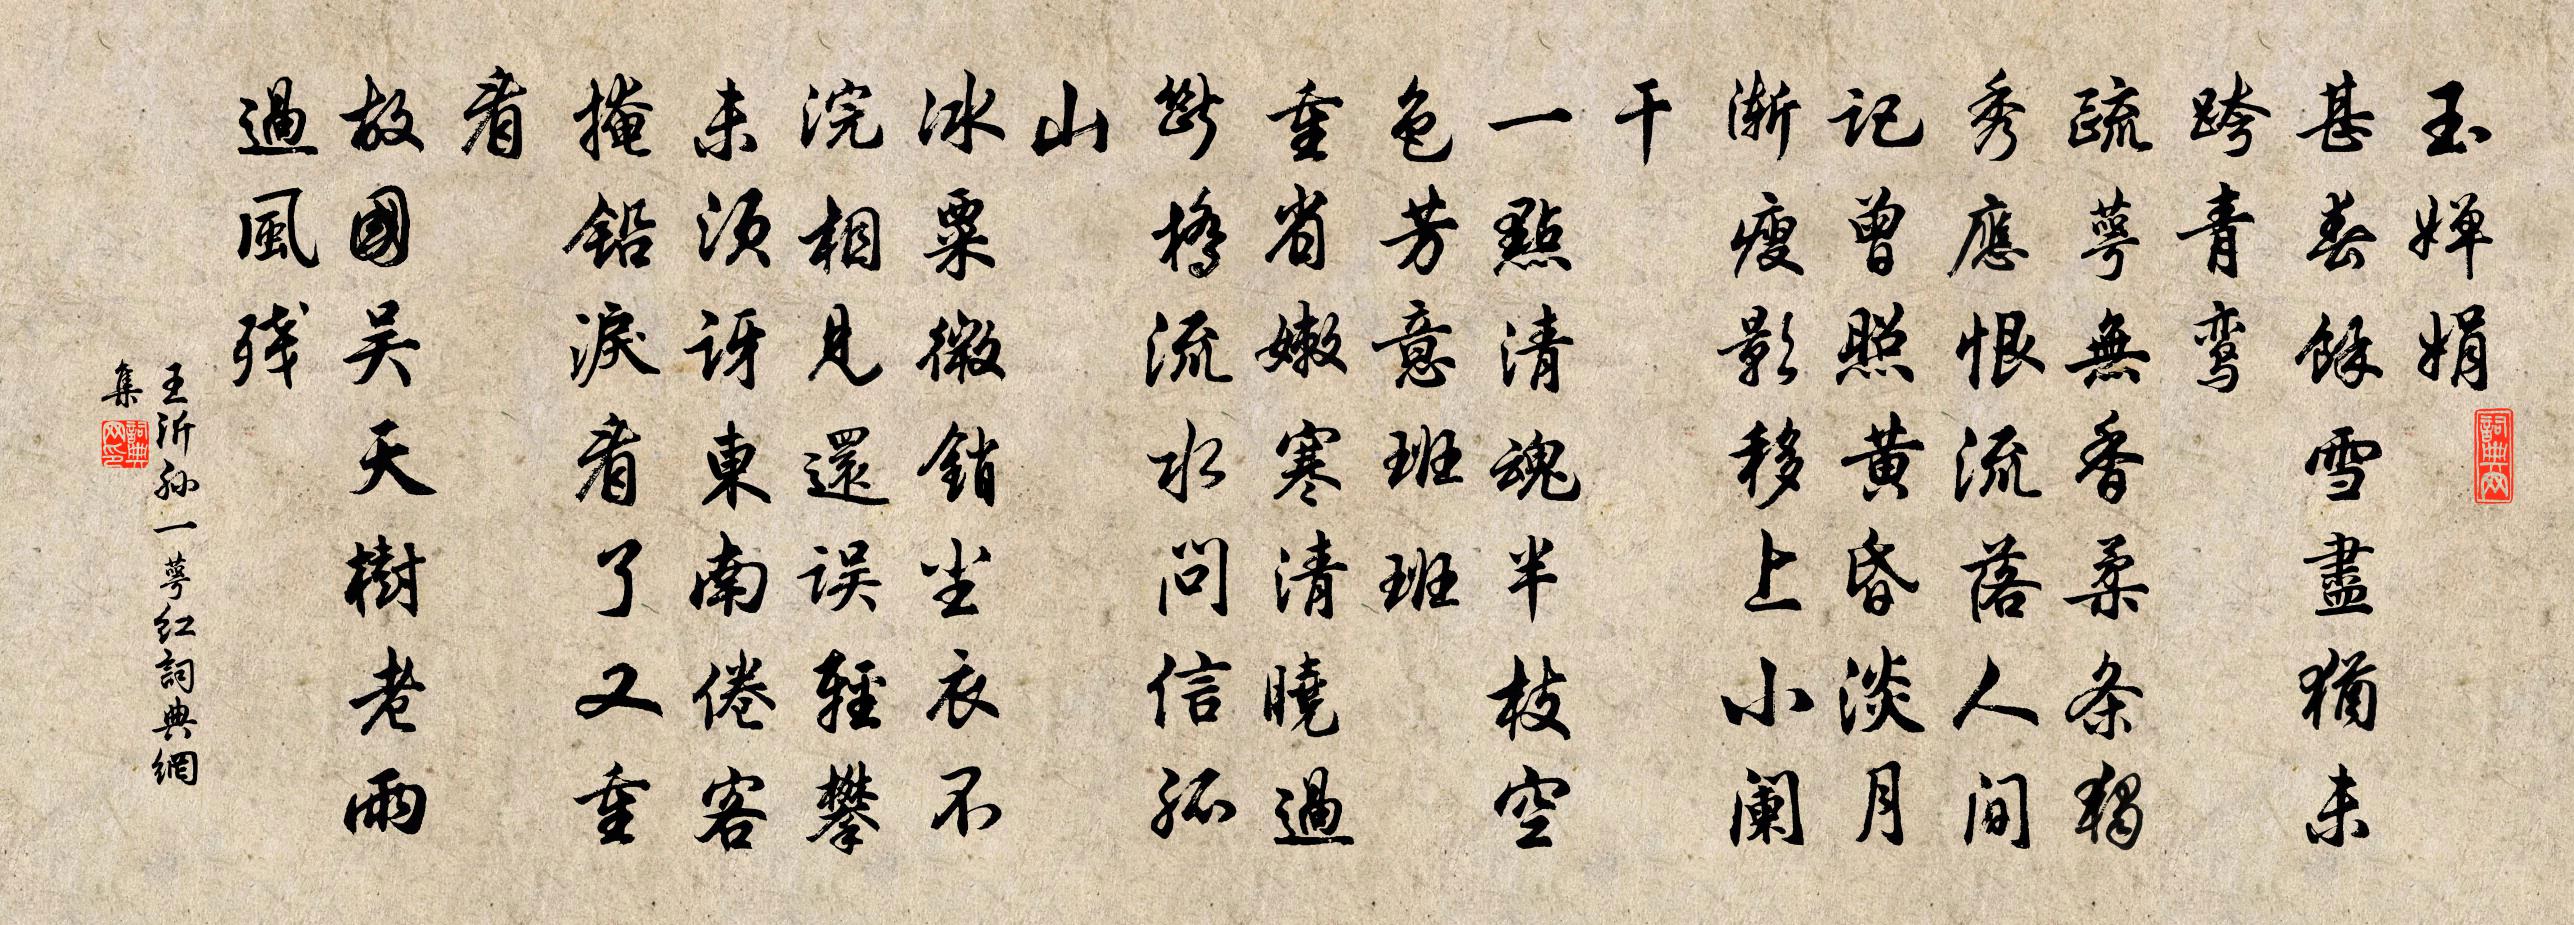 玉婵娟
甚春餘雪盡猶未
跨青鸾
疏萼無香柔条獨
秀應恨流落人间
记曾照黄昏淡月
渐瘦影移上小阑
干
一點清魂半枝空
色芳意班班
重省嫩寒清曉過
斷橋流水问信孤
山
冰粟微銷尘衣不
浣相見還误輕攀
未须讶東南倦客
掩铅淚看了又重
看
故國吴天樹老雨
過風残
王沂孙一萼红詞典網
集
詞典网
詞典网印